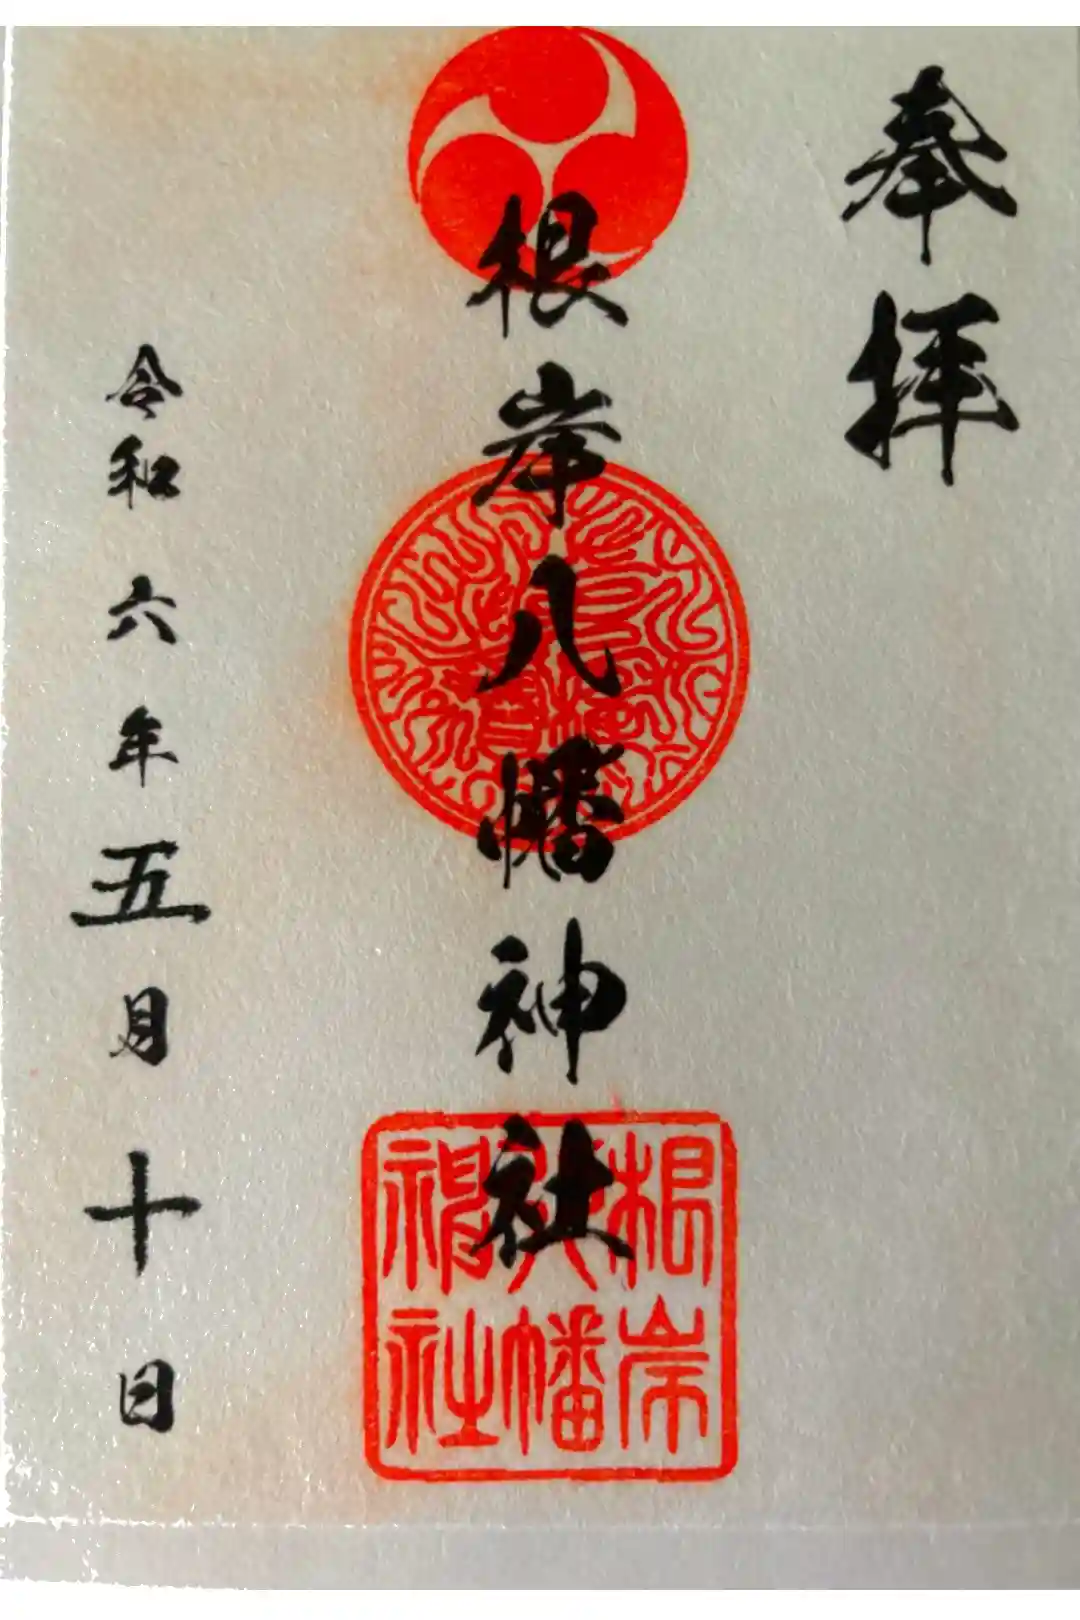 奉拝
根岸八幡神社
根岸
八幡
神社
令和六年五月十日